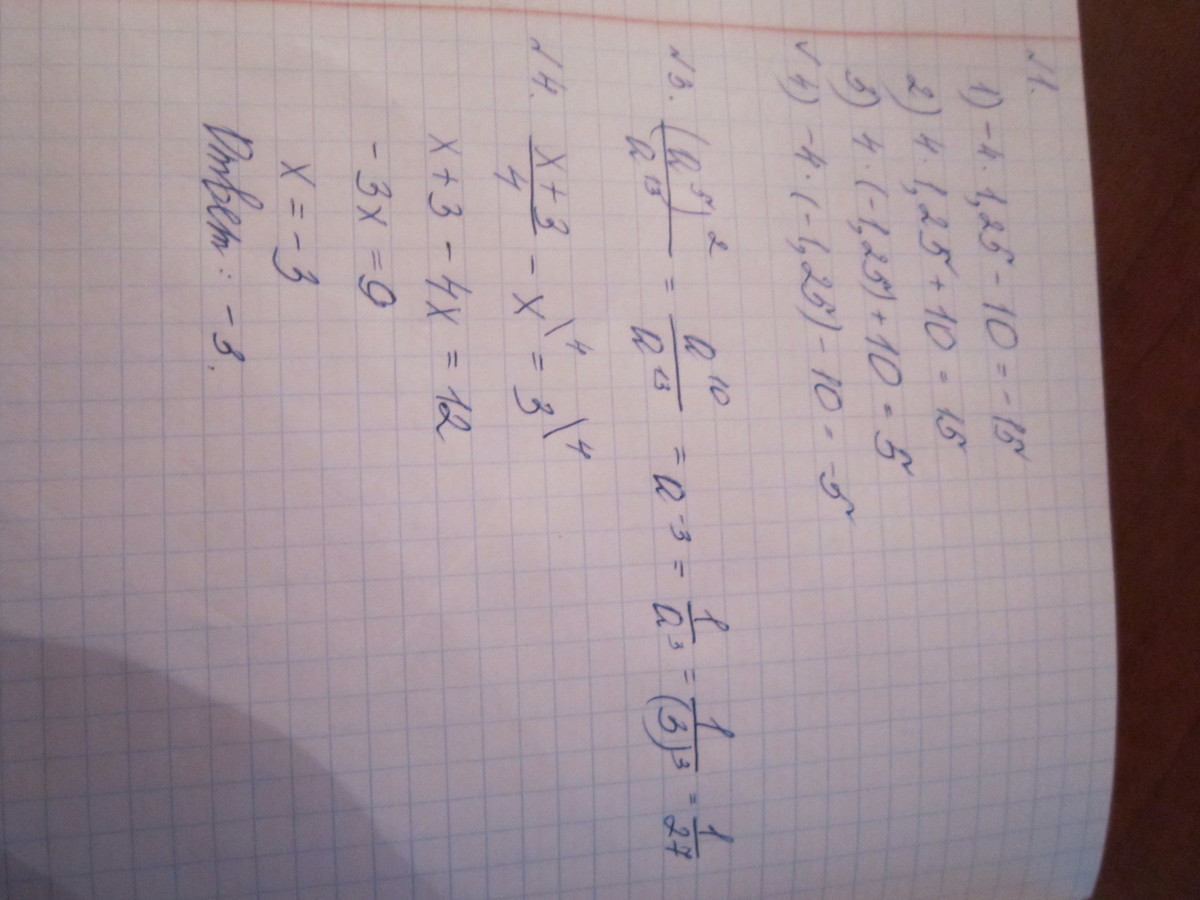 №1.
1) -4·1,25-10=-15
2) 4·1,25+10=15
3) 4·(-1,25)+10=5
√ 4) -4·(-1,25)-10=-5
№3. (a⁵)²/a¹³ = a¹⁰/a¹³ = a⁻³ = 1/a³ = 1/(3)³ = 1/27
№4. (x+3)/4 - x\⁴ = 3\⁴
x+3-4x=12
-3x=9
x=-3
Ответ: -3.